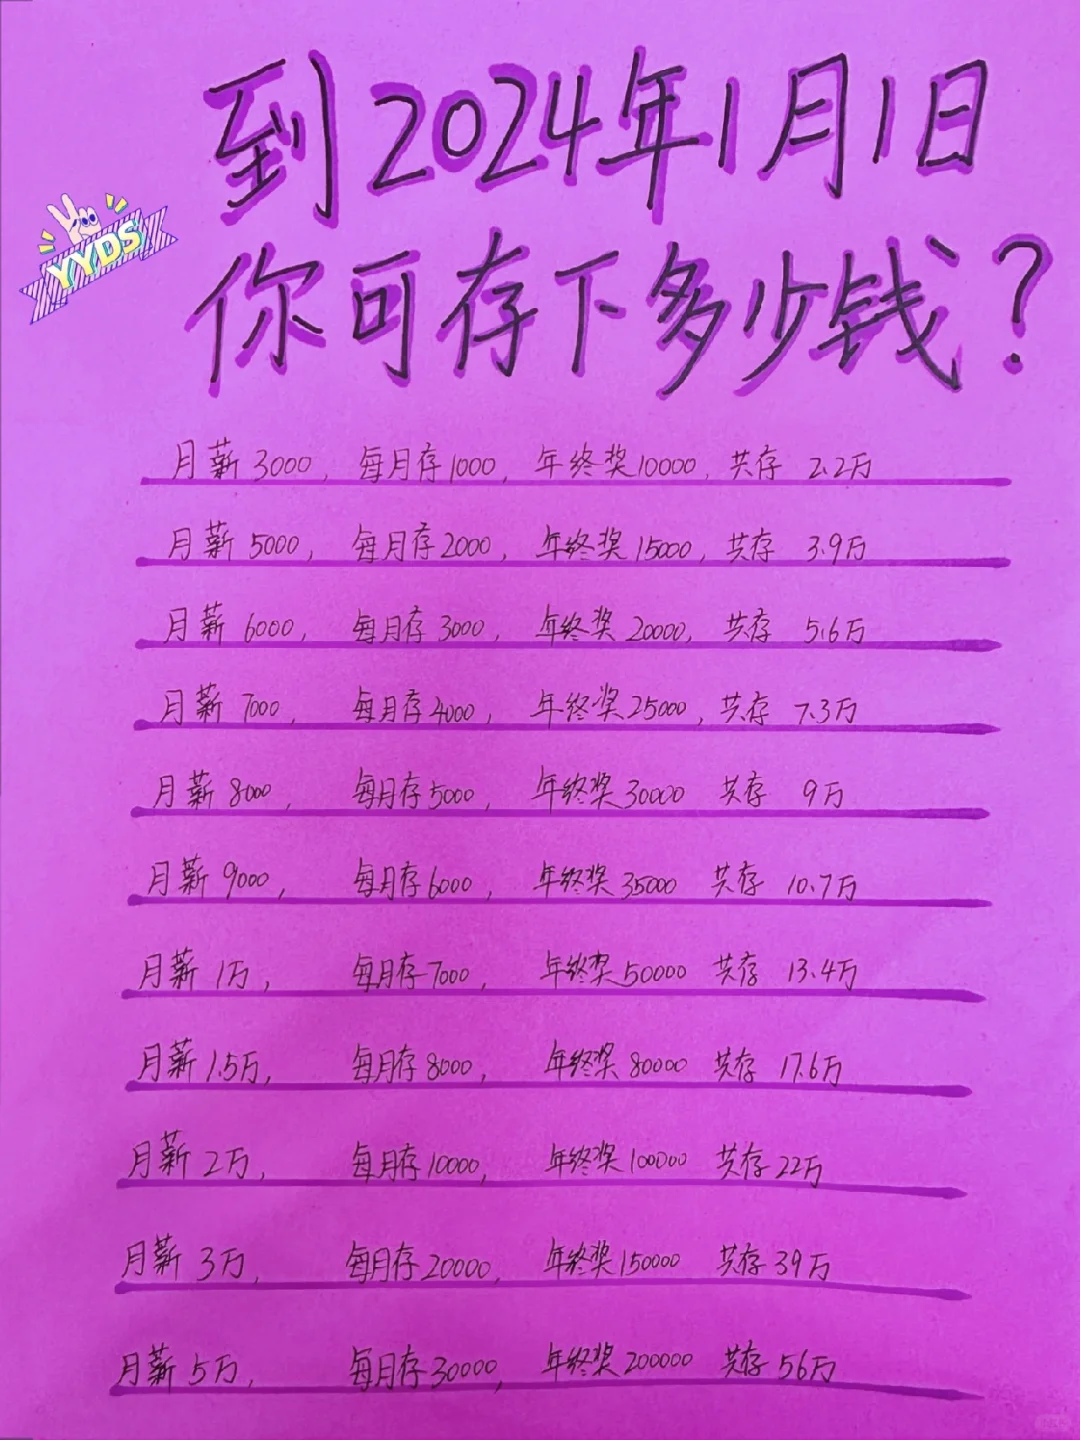 到2024年1月1日
YYDS
你可存下多少钱？
月薪3000, 每月存1000, 年终奖10000, 共存 2.2万
月薪5000, 每月存2000, 年终奖15000, 共存 3.9万
月薪6000, 每月存3000, 年终奖20000, 共存 5.6万
月薪7000, 每月存4000, 年终奖25000, 共存 7.3万
月薪8000, 每月存5000, 年终奖30000 共存 9万
月薪9000, 每月存6000, 年终奖35000 共存 10.7万
月薪1万, 每月存7000, 年终奖50000 共存 13.4万
月薪1.5万, 每月存8000, 年终奖80000 共存 17.6万
月薪2万, 每月存10000, 年终奖100000 共存22万
月薪3万, 每月存20000, 年终奖150000 共存39万
月薪5万, 每月存30000, 年终奖200000 共存56万